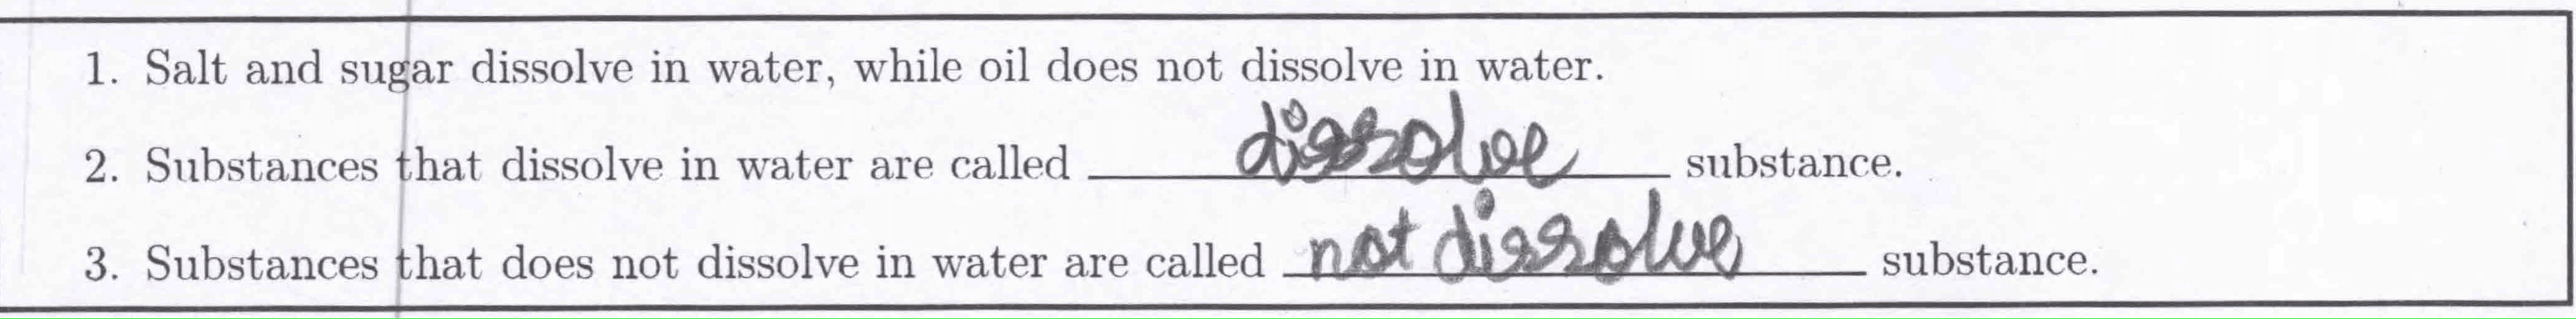 1. Salt and sugar dissolve in water, while oil does not dissolve in water.
2. Substances that dissolve in water are called dissolve substance.
3. Substances that does not dissolve in water are called not dissolve substance.